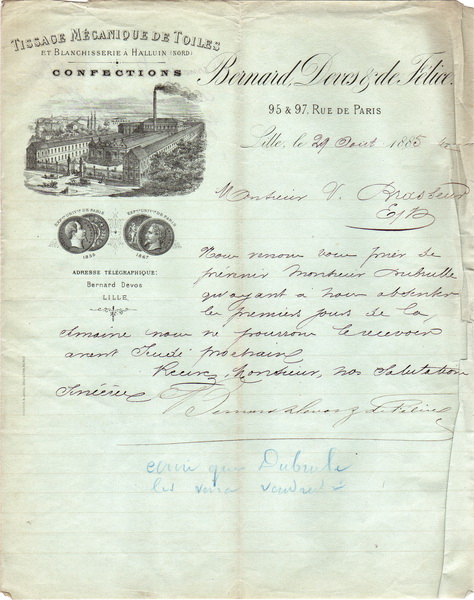 TISSAGE MÉCANIQUE DE TOILES
ET BLANCHISSERIE A HALLUIN (NORD)
CONFECTIONS
Bernard, Devos & de Félice.
95 & 97, RUE DE PARIS
Lille, le 29 Aout 1885
Monsieur V. Brasseur
EXP. UNIV. DE PARIS
EXP. UNIV. DE PARIS
1855
1867
ADRESSE TÉLÉGRAPHIQUE:
Bernard Devos
LILLE.
Nous venons vous prier de
prévenir Monsieur Dubrulle
qu'ayant à nous absenter
les premiers jours de la
semaine nous ne pourrons le recevoir
avant Jeudi prochain
Recevez, Monsieur, nos salutations
sincères
Bernard Devos & de Félice
écrire que Dubrulle
les verra vendredi